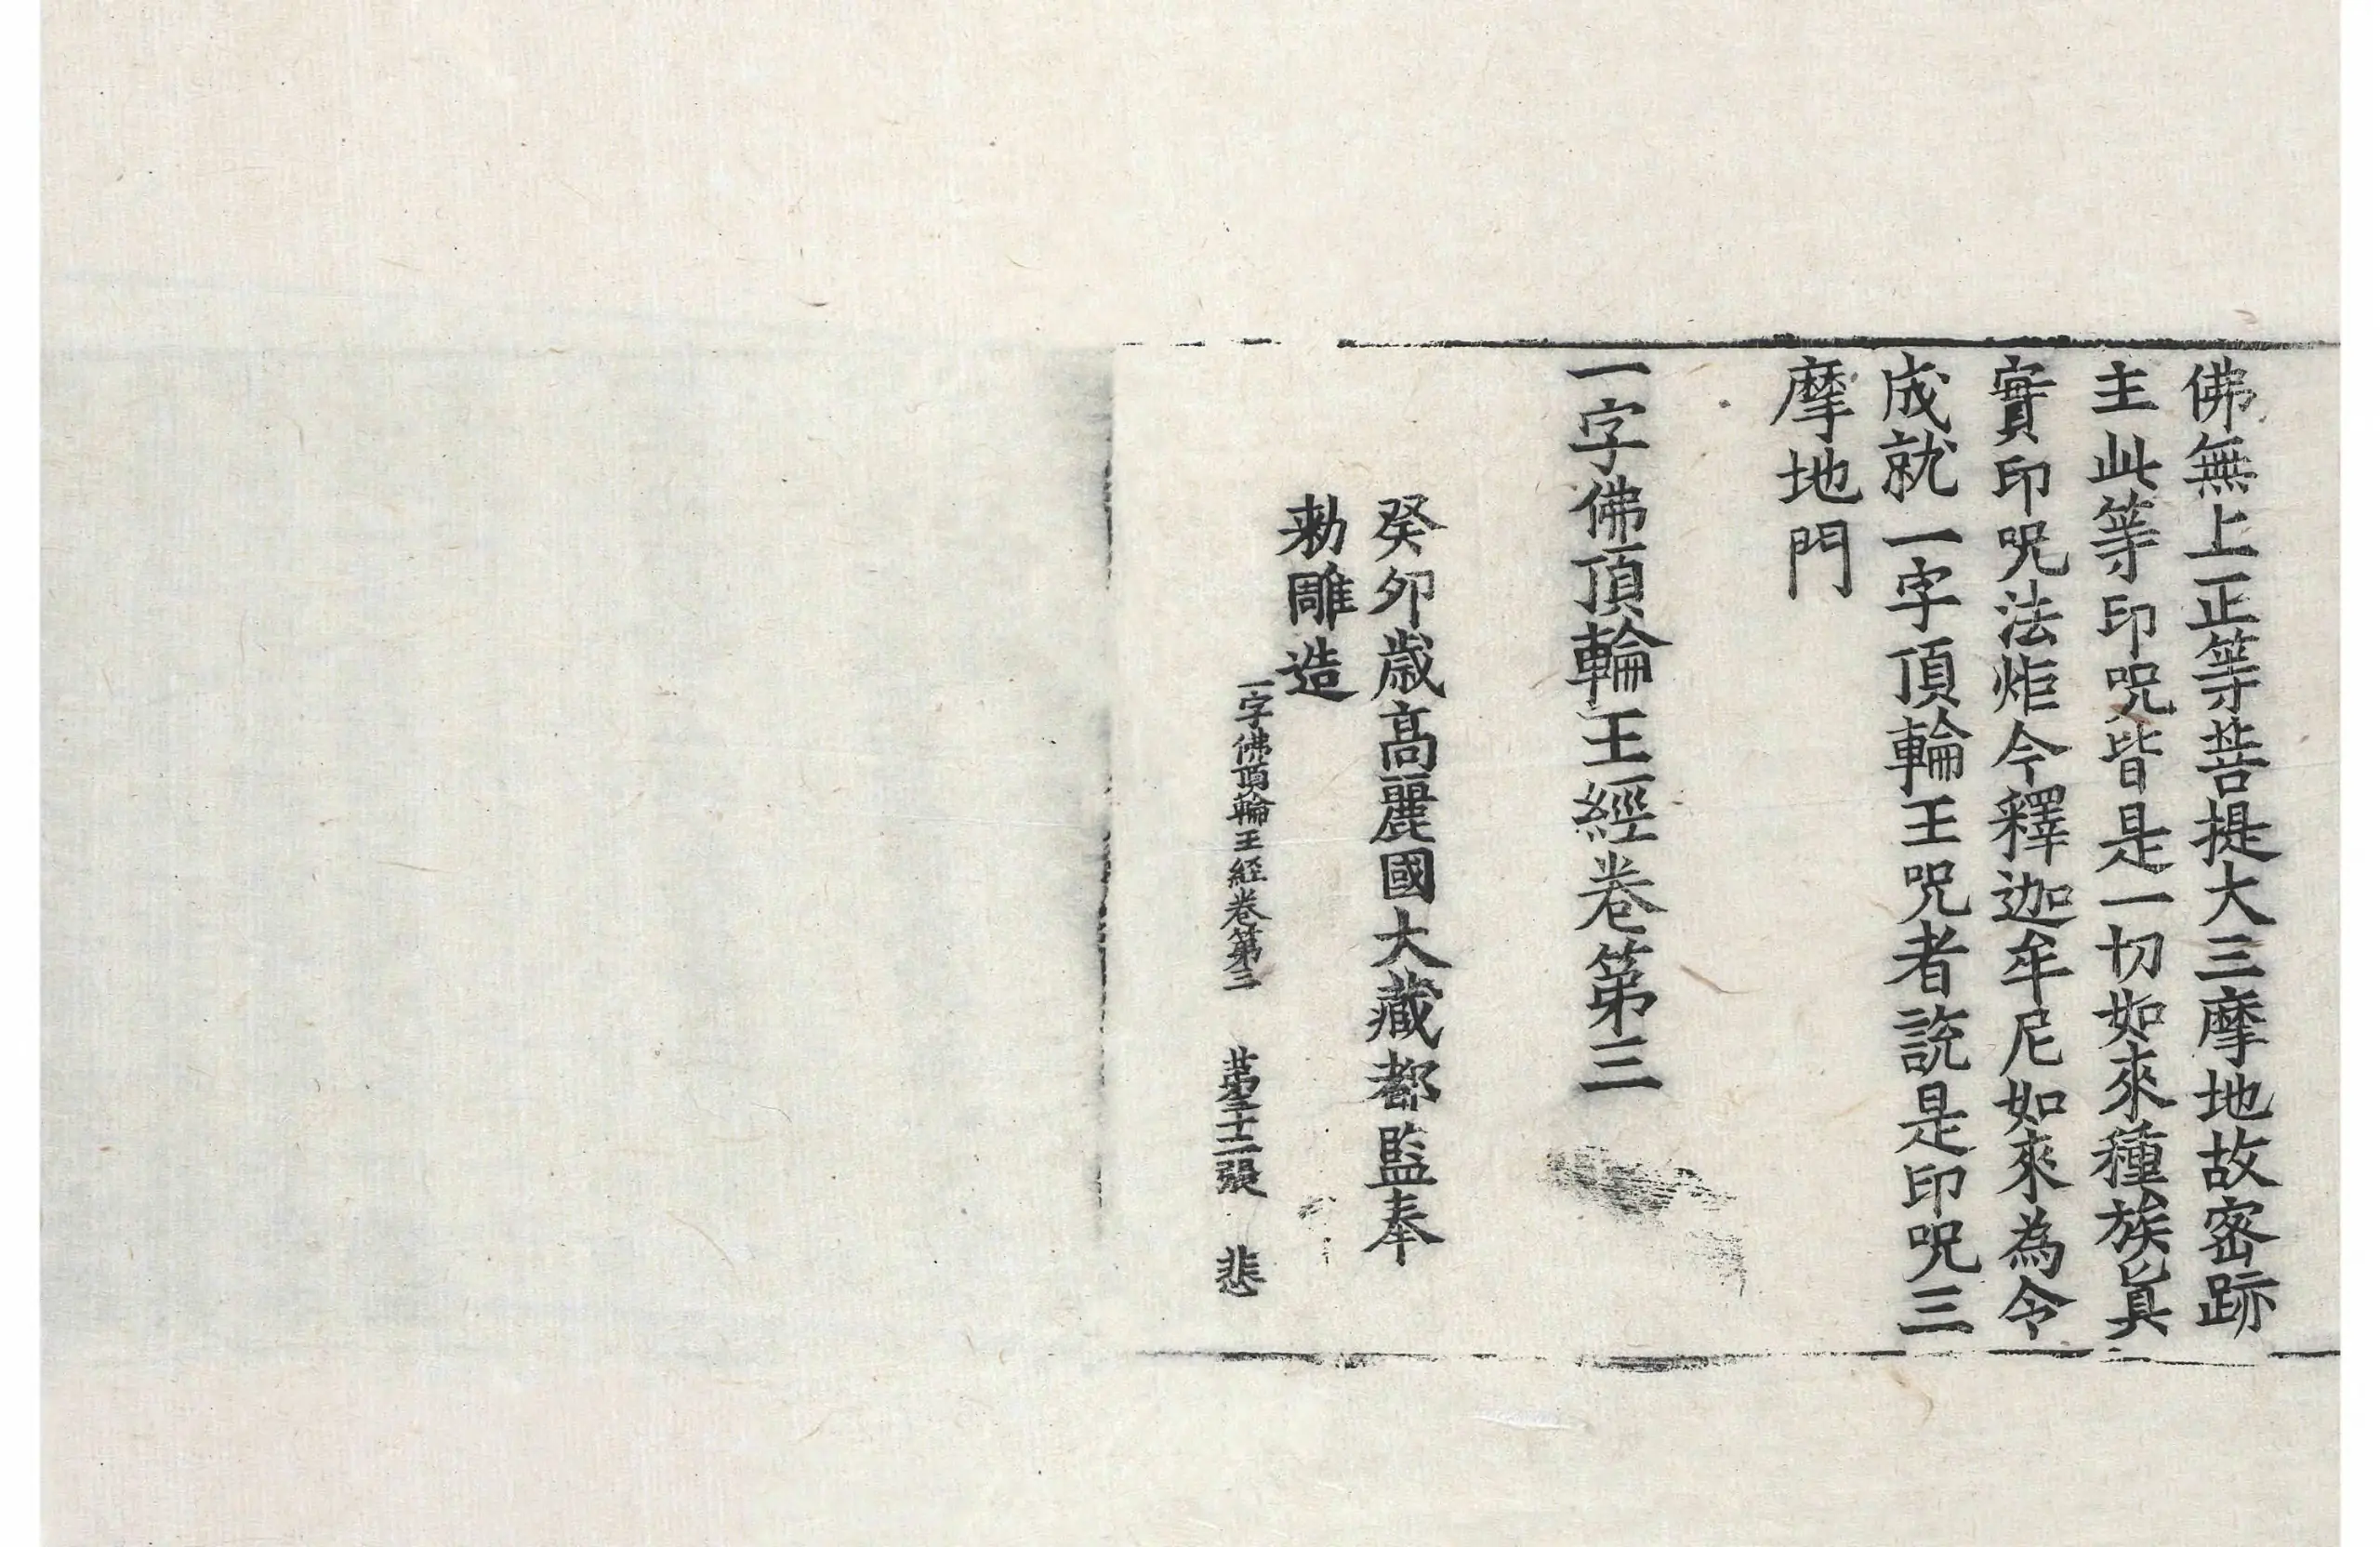 佛無上正等菩提大三摩地故密跡
主此等印呪皆是一切如來種族眞
實印呪法炬今釋迦牟尼如來為令
成就一字頂輪王呪者說是印呪三
摩地門
一字佛頂輪王經卷第三
癸卯歲高麗國大藏都監奉
勅雕造
一字佛頂輪王経卷第三 苐三十二張 悲